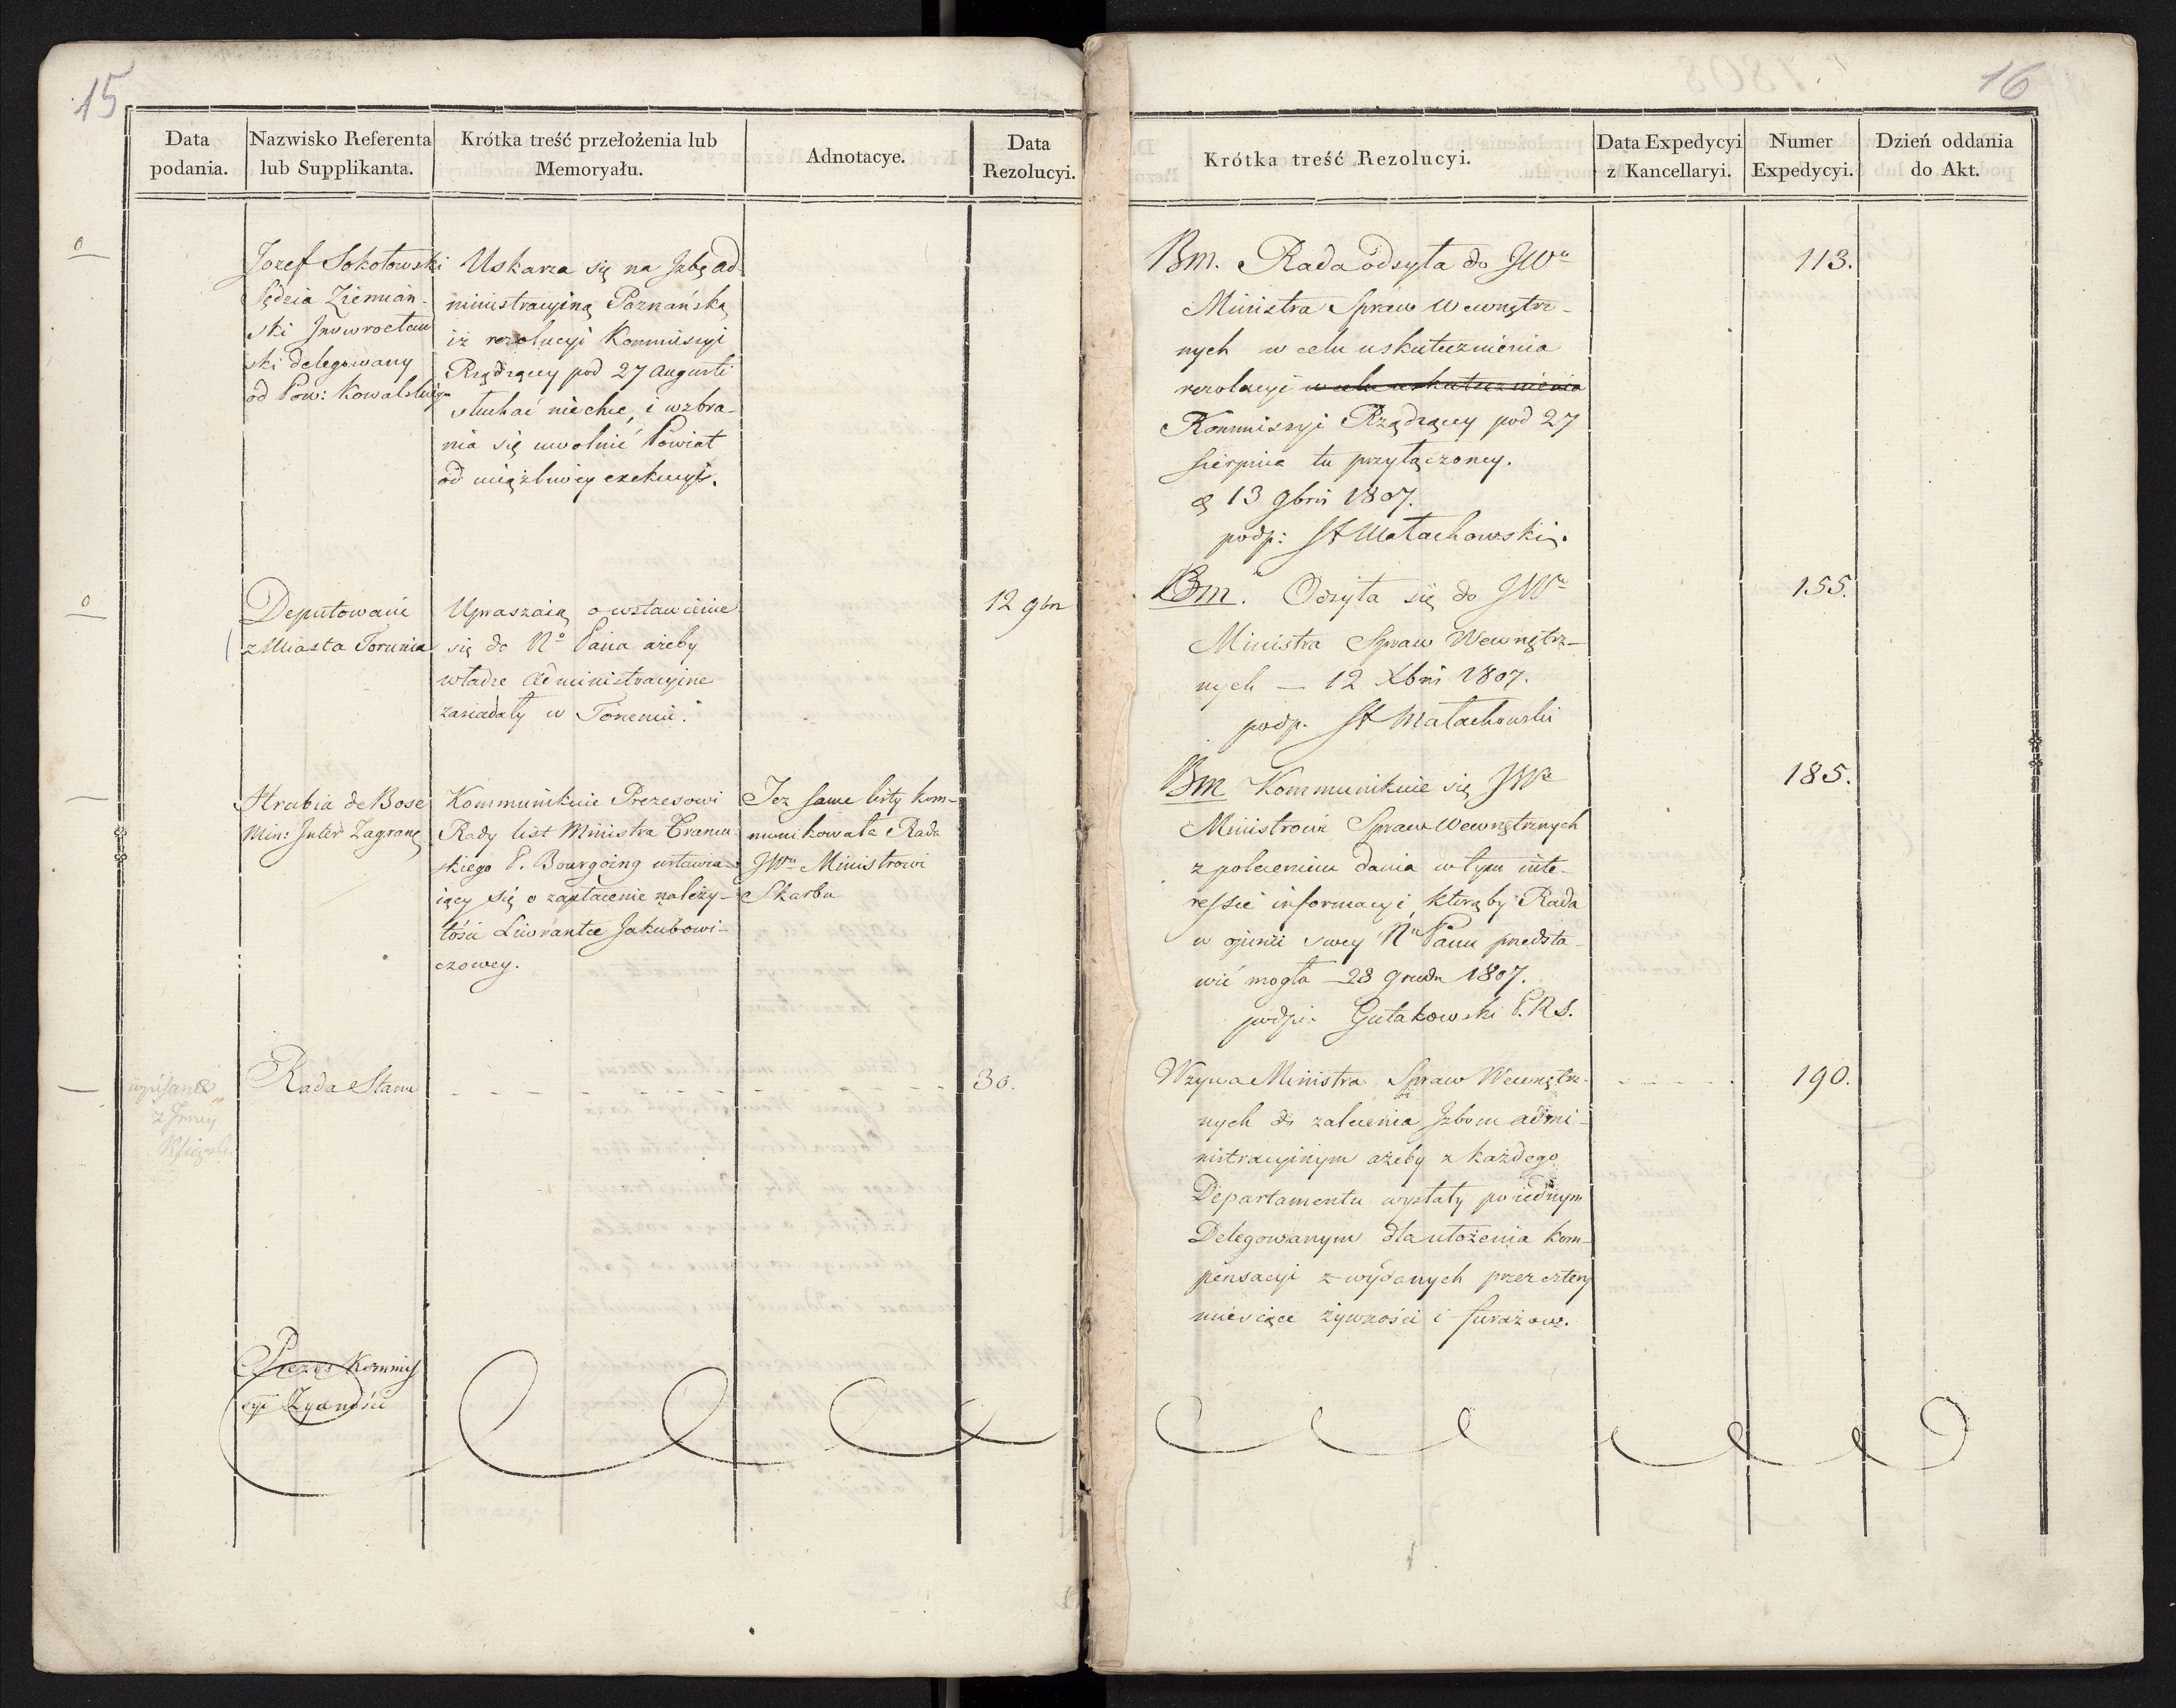 15
Data podania.
Nazwisko Referenta lub Supplikanta.
Krótka treść przełożenia lub Memoryału.
Adnotacye.
Data Rezolucyi.
Jozef Sokołowski
Sędzia Ziemian-
ski Jnowrocław
ski delegowany
od Pow: Kowalskiego
Uskarza się na Jzbę ad-
ministracyiną Poznańską
iż rezolucyi Kommissyi
Rządzącey pod 27 Augusti
słuchać niechce, i wzbra-
nia się uwolnić Powiat
od uciążliwey exekucyi.
Deputowani
z Miasta Torunia
Upraszaią o wstawienie
się do No Pana ażeby
władze Administracyine
zasiadały w Toruniu.
12 9br
Hrabia de Bose
Min: Inter Zagranc
Kommunikuie Prezesowi
Rady list Ministra Francu-
skiego P. Bourgoing wstawia-
iący się o zapłacenie należy-
tości Liwrantce Jakubowi-
czowey.
Też same listy kom-
munikowała Rada
JWu Ministrowi
Skarbu
wpisane
z Jnney
Księgi
Rada Stanu
30.
Prezes Kommis
syi Żywności
16
Krótka treść Rezolucyi.
Data Expedycyi z Kancellaryi.
Numer Expedycyi.
Dzień oddania do Akt.
Bm. Rada odsyła do JWo
Ministra Spraw Wewnętrz-
nych w celu uskutecznienia
rezolucyi w celu uskutecznienia
Kommissyi Rządzącey pod 27
Sierpnia tu przyłączoney.
13 9bris 1807.
podp: St Małachowski.
113.
Bm. Odsyła się do JWo
Ministra Spraw Wewnętrz-
nych — 12 Xbris 1807.
podp. St Małachowski
155.
Bm Kommunikuie się JWu
Ministrowi Spraw Wewnętrznych
z poleceniem dania w tym inte-
ressie informacyi, którąby Rada
w opinii swey Nu Panu przedsta-
wić mogła — 28 Grudn 1807.
podpi. Gutakowski P.R.S.
185.
Wzywa Ministra Spraw Wewnętrz-
nych do zalecenia Jzbom admi-
nistracyinym ażeby z każdego
Departamentu wysłały po iednym
Delegowanym dla ułożenia kom-
pensacyi z wydanych przez cztery
miesiące żywności i furażow.
190.